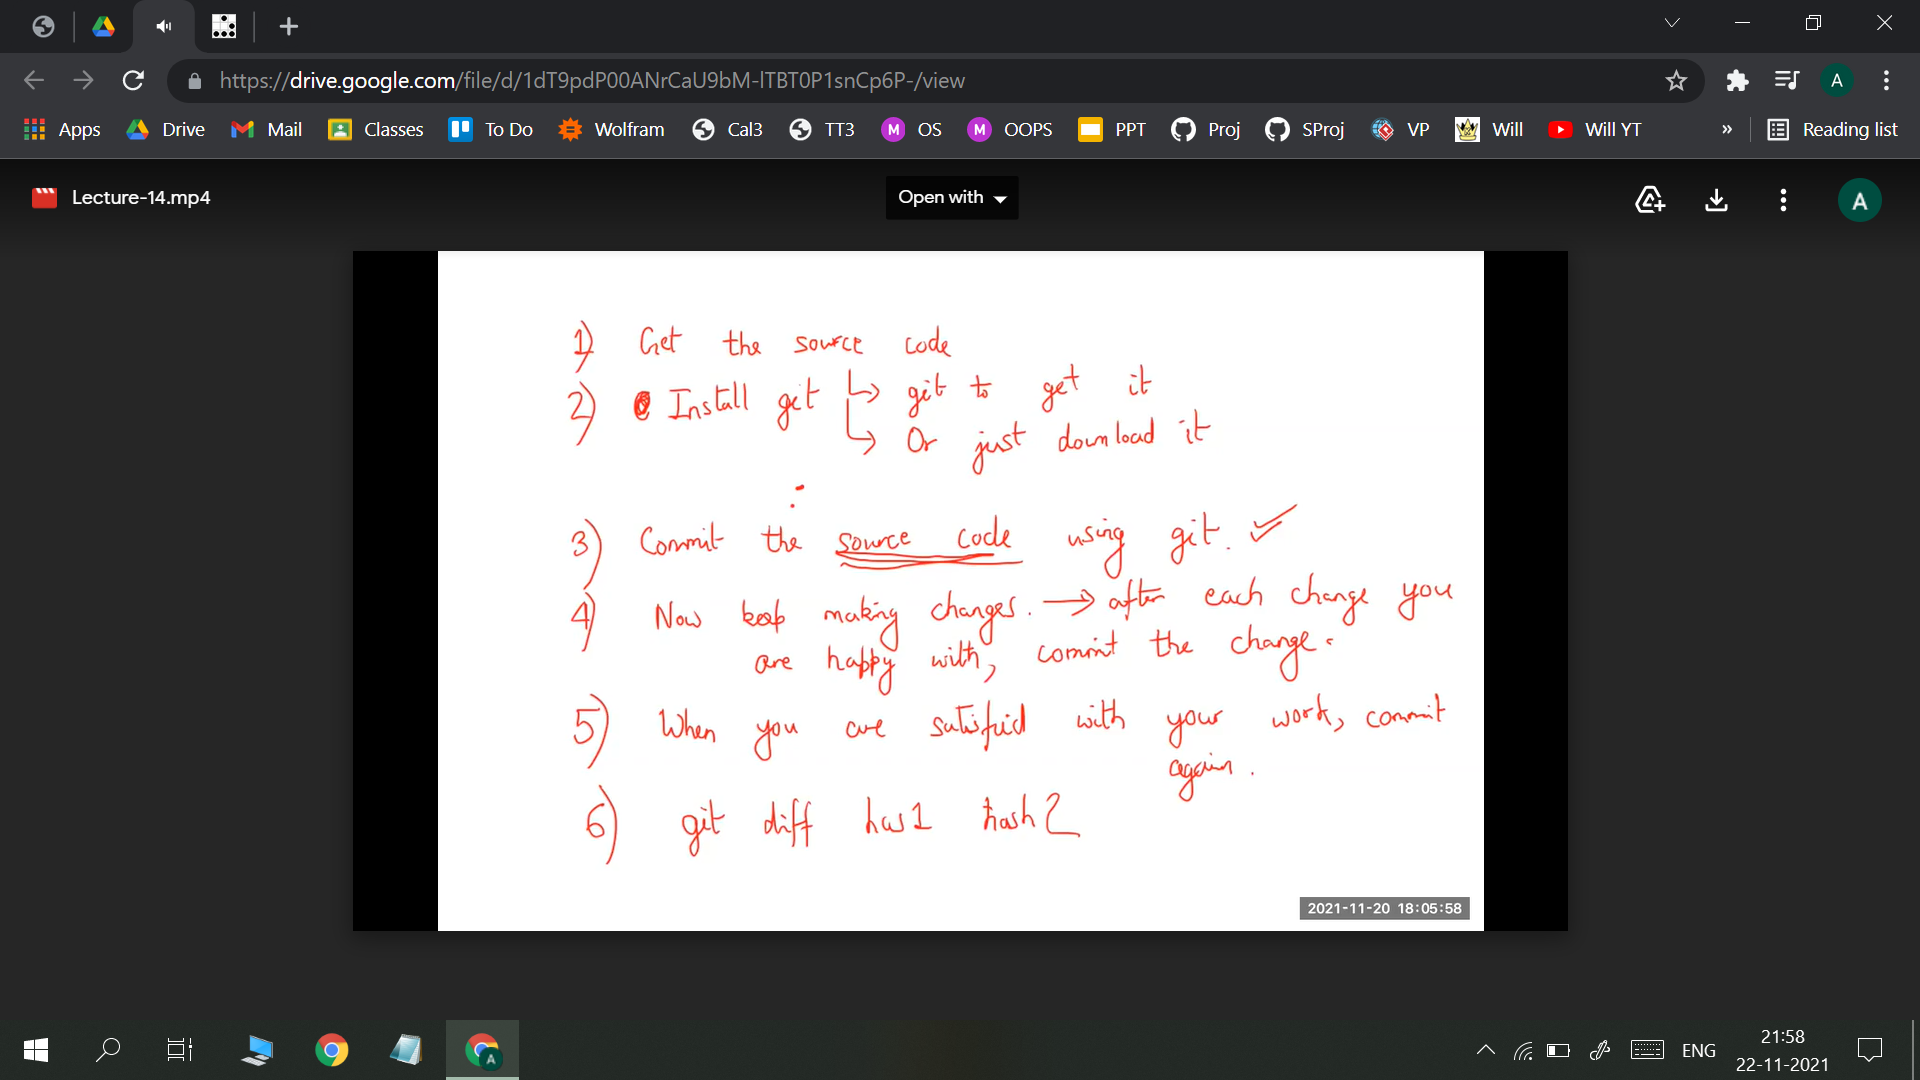 https://drive.google.com/file/d/1dT9pdP00ANrCaU9bM-lTBT0P1snCp6P-/view
A
Apps Drive Mail Classes To Do Wolfram Cal3 TT3 OS OOPS PPT Proj SProj VP Will Will YT » Reading list
Lecture-14.mp4 Open with A
1) Get the source code
2) Install git ↳ git to get it
↳ Or just download it
3) Commit the source code using git. ✓
4) Now keep making changes. → after each change you
are happy with, commit the change.
5) When you are satisfied with your work, commit
again.
6) git diff has1 hash2
2021-11-20 18:05:58
ENG 21:58
22-11-2021